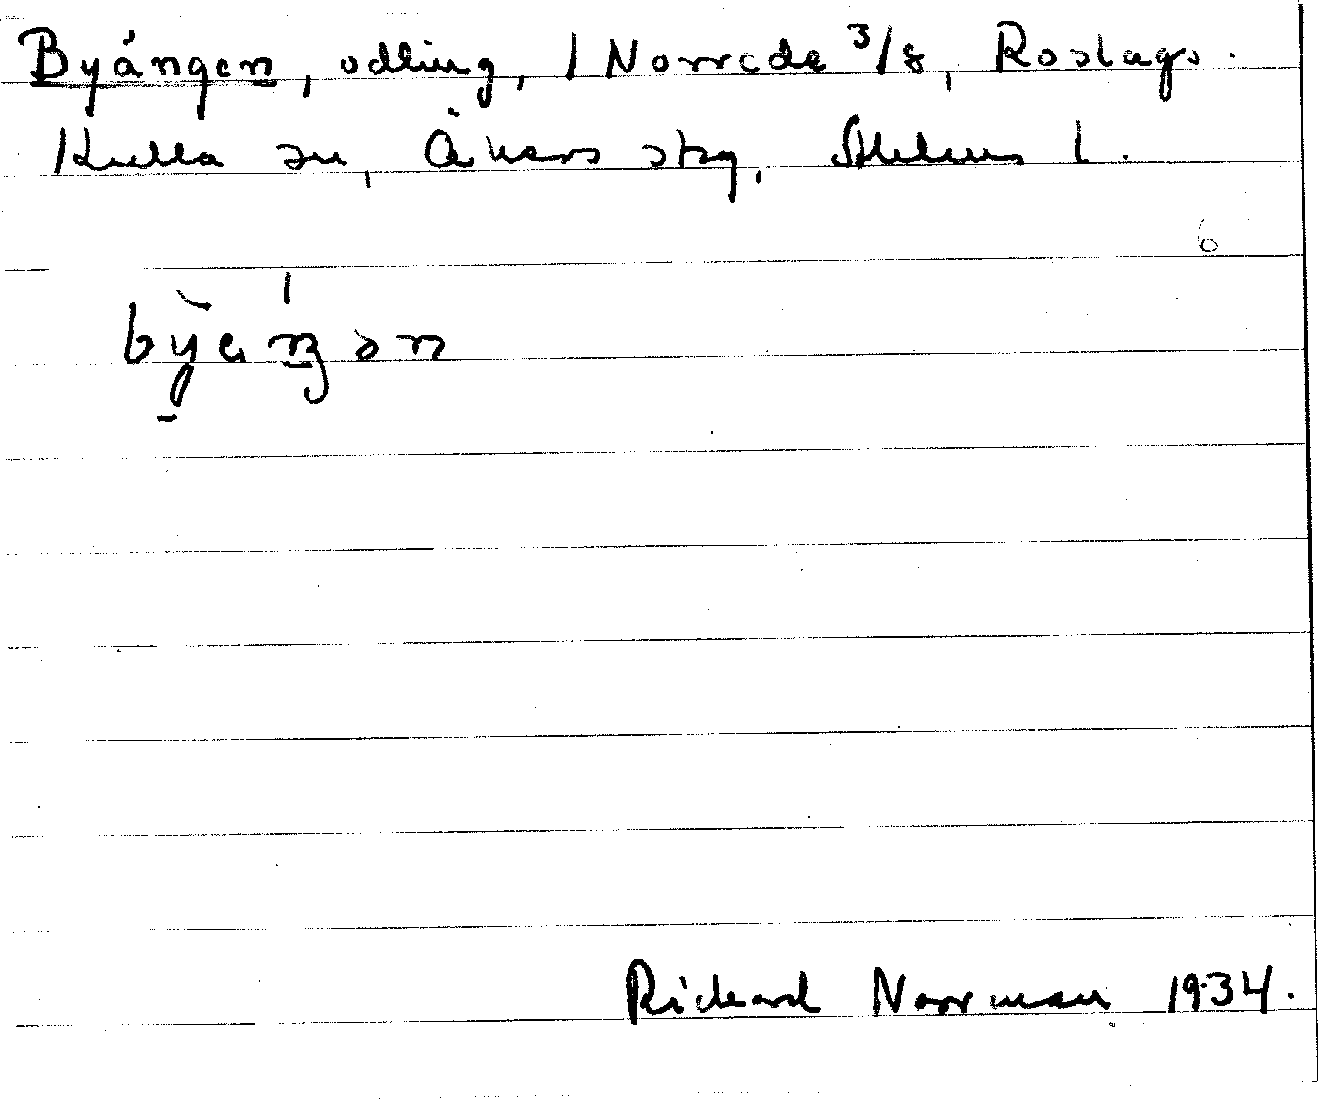 Byängen, odling, 1 Norreda 3/8, Roslags.
Kulla sn, Åkers skg, Sthlms l.
6
Rickard Norrman 1934.